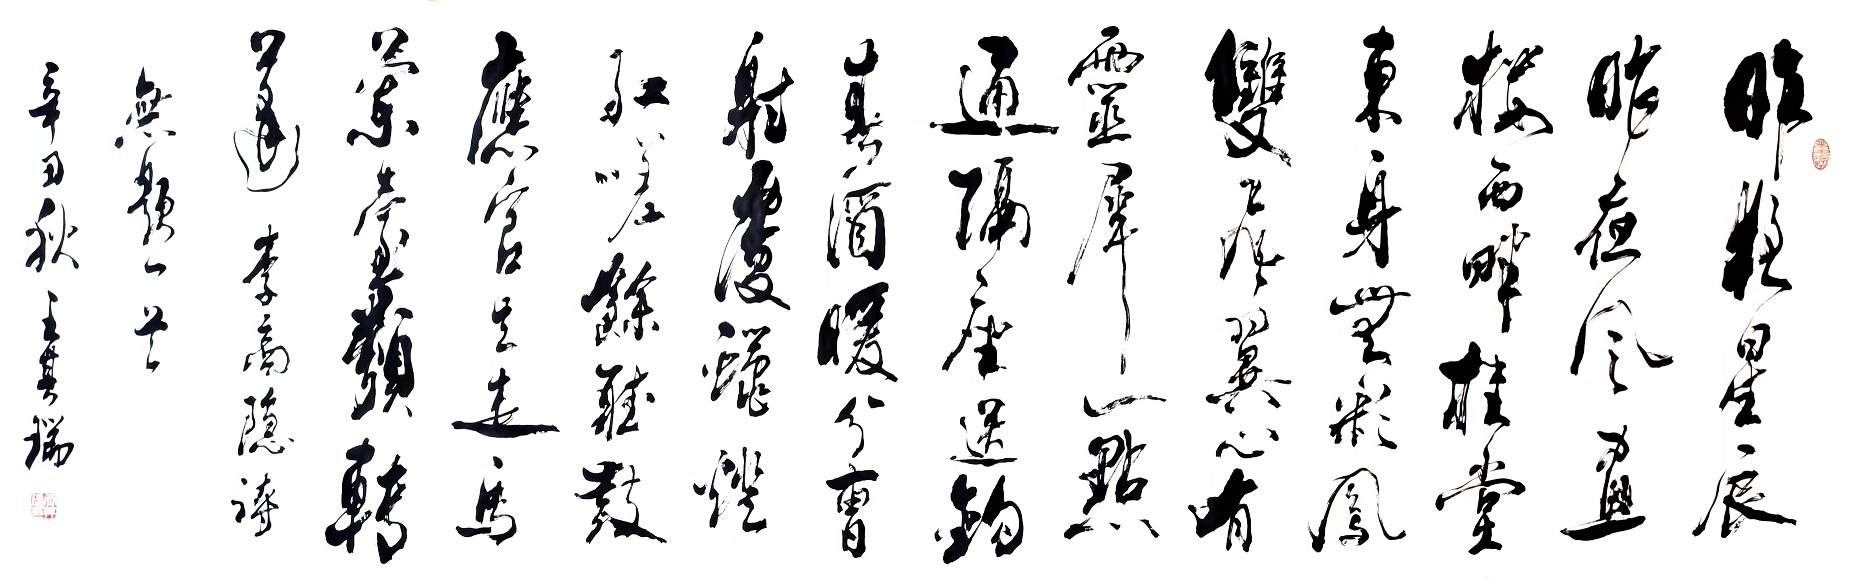 昨夜星辰
昨夜风畫
樓西畔桂堂
東身無彩鳳
雙飛翼心有
靈犀一點
通隔座送鉤
春酒暖分曹
射覆蠟燈
紅嗟餘聽鼓
應官去走馬
蘭臺類轉
蓬 李商隱詩
無題一首
辛丑秋 王其瑞